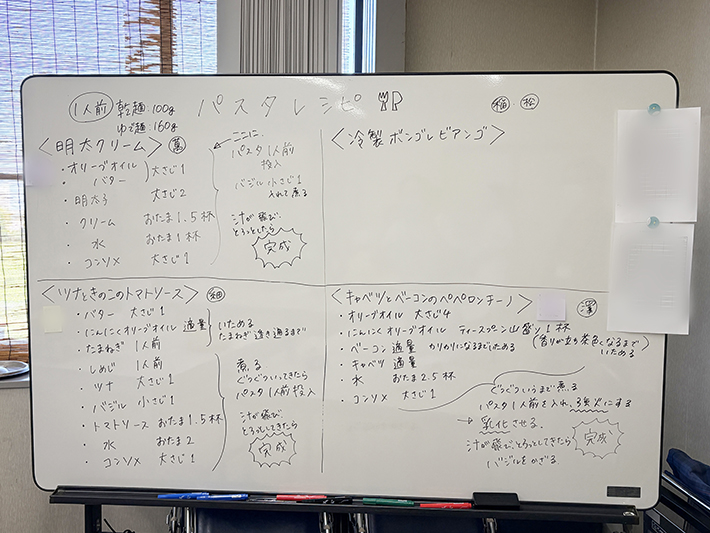 1人前 乾麺:100g
ゆで麺:160g
パスタレシピ
稲 松
<明太クリーム> 萬
・オリーブオイル
・バター
大さじ1
・明太子 大さじ2
・クリーム おたま1.5杯
・水 おたま1杯
・コンソメ 大さじ1
ここに、
パスタ1人前
投入
バジル小さじ1
入れて煮る
汁が飛び、
とろっとしたら
完成
<冷製ボンゴレビアンゴ>
<ツナときのこのトマトソース> 細
・バター 大さじ1
・にんにくオリーブオイル 適量
いためる
たまねぎ透き通るまで
・たまねぎ 1人前
・しめじ 1人前
・ツナ 大さじ1
・バジル 小さじ1
・トマトソース おたま1.5杯
・水 おたま2
・コンソメ 大さじ1
煮る
ぐつぐついってきたら
パスタ1人前投入
汁が飛び、
とろっとしてきたら
完成
<キャベツとベーコンのペペロンチーノ> 澤
・オリーブオイル 大さじ4
・にんにくオリーブオイル ティースプーン山盛り1杯
(香りが立ち茶色くなるまで
いためる)
・ベーコン 適量 かりかりになるまでいためる
・キャベツ 適量
・水 おたま2.5杯
・コンソメ 大さじ1
ぐつぐついうまで煮る
パスタ1人前を入れ、強火にする
→乳化させる
汁が飛び、とろっとしてきたら
バジルをかざる
完成